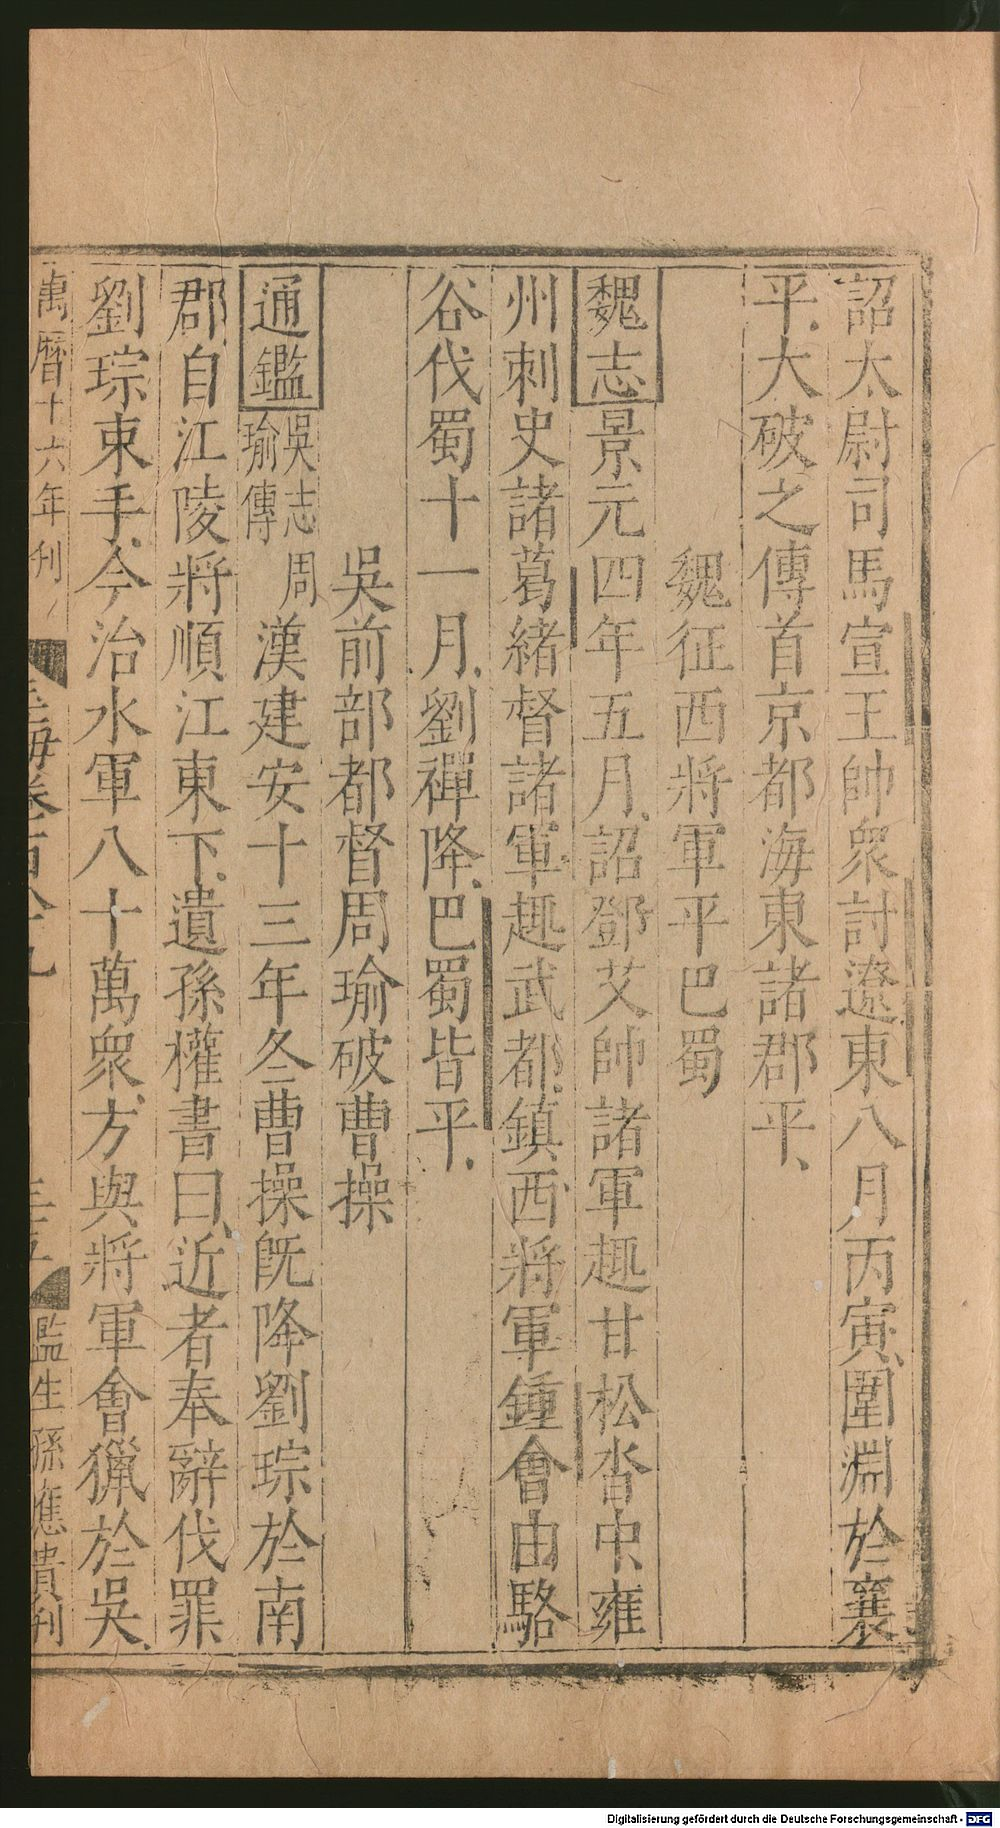 詔太尉司馬宣王帥衆討遼東八月丙寅、圍淵於襄
平、大破之傳首京都海東諸郡平、
魏征西將軍平巴蜀
魏志景元四年五月、詔鄧艾帥諸軍趣甘松沓中、雍
州刺史諸葛緒督諸軍趣武都、鎮西將軍鍾會由駱
谷伐蜀十一月、劉禪降、巴蜀皆平、
吳前部都督周瑜破曹操
通鑑吳志周瑜傳漢建安十三年冬曹操旣降劉琮於南
郡自江陵將順江東下、遺孫權書曰、近者奉辭伐罪
劉琮束手、今治水軍八十萬衆、方與將軍會獵於吳、
萬曆十六年刊
卷百
監生孫應貴刋
Digitalisierung gefördert durch die Deutsche Forschungsgemeinschaft - DFG